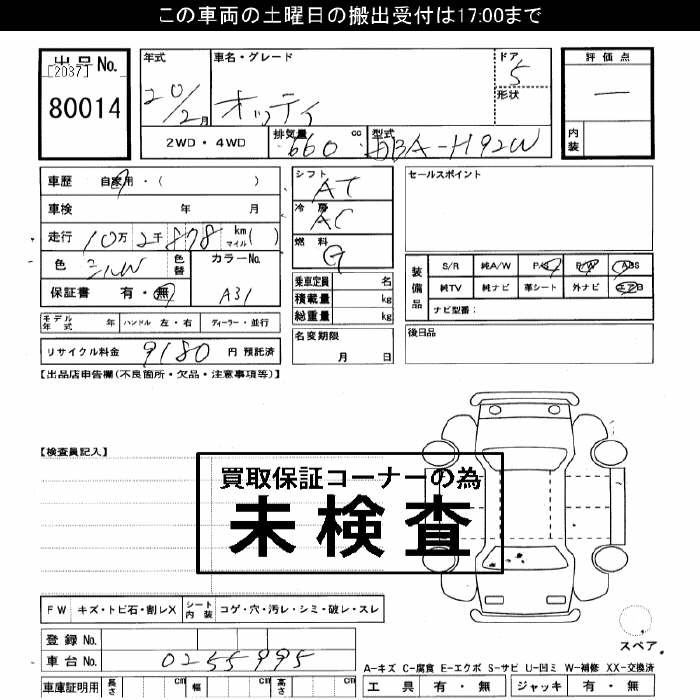 この車両の土曜日の搬出受付は17:00まで
出品No.
[2037]
80014
年式
20/2月
車名・グレード
オッティ
ドア
5
形状
評価点
―
内装
2WD・4WD
排気量
660 cc
型式
DBA-H92W
車歴 自家用・( )
車検 年 月
走行 10万 2千 878 km マイル ( )
色
シルバ
色替
カラーNo.
A31
保証書 有・無
シフト
AT
冷房
AC
燃料
G
乗車定員 名
積載量 kg
総重量 kg
セールスポイント
装備品
S/R 純A/W P/S P/W ABS
純TV 純ナビ 革シート 外ナビ エアB
ナビ型番:
モデル年式 年
ハンドル 左・右
ディーラー・並行
名変期限
月 日
後日品
リサイクル料金 9180 円 預託済
【出品店申告欄(不良箇所・欠品・注意事項等)】
【検査員記入】
買取保証コーナーの為
未検査
FW キズ・トビ石・割レX
シート内装 コゲ・穴・汚レ・シミ・破レ・スレ
登録No.
車台No. 0255995
車庫証明用 長さ cm 幅 cm 高さ cm
スペア
A-キズ C-腐食 E-エクボ S-サビ U-凹ミ W-補修 XX-交換済
工具 有・無 ジャッキ 有・無